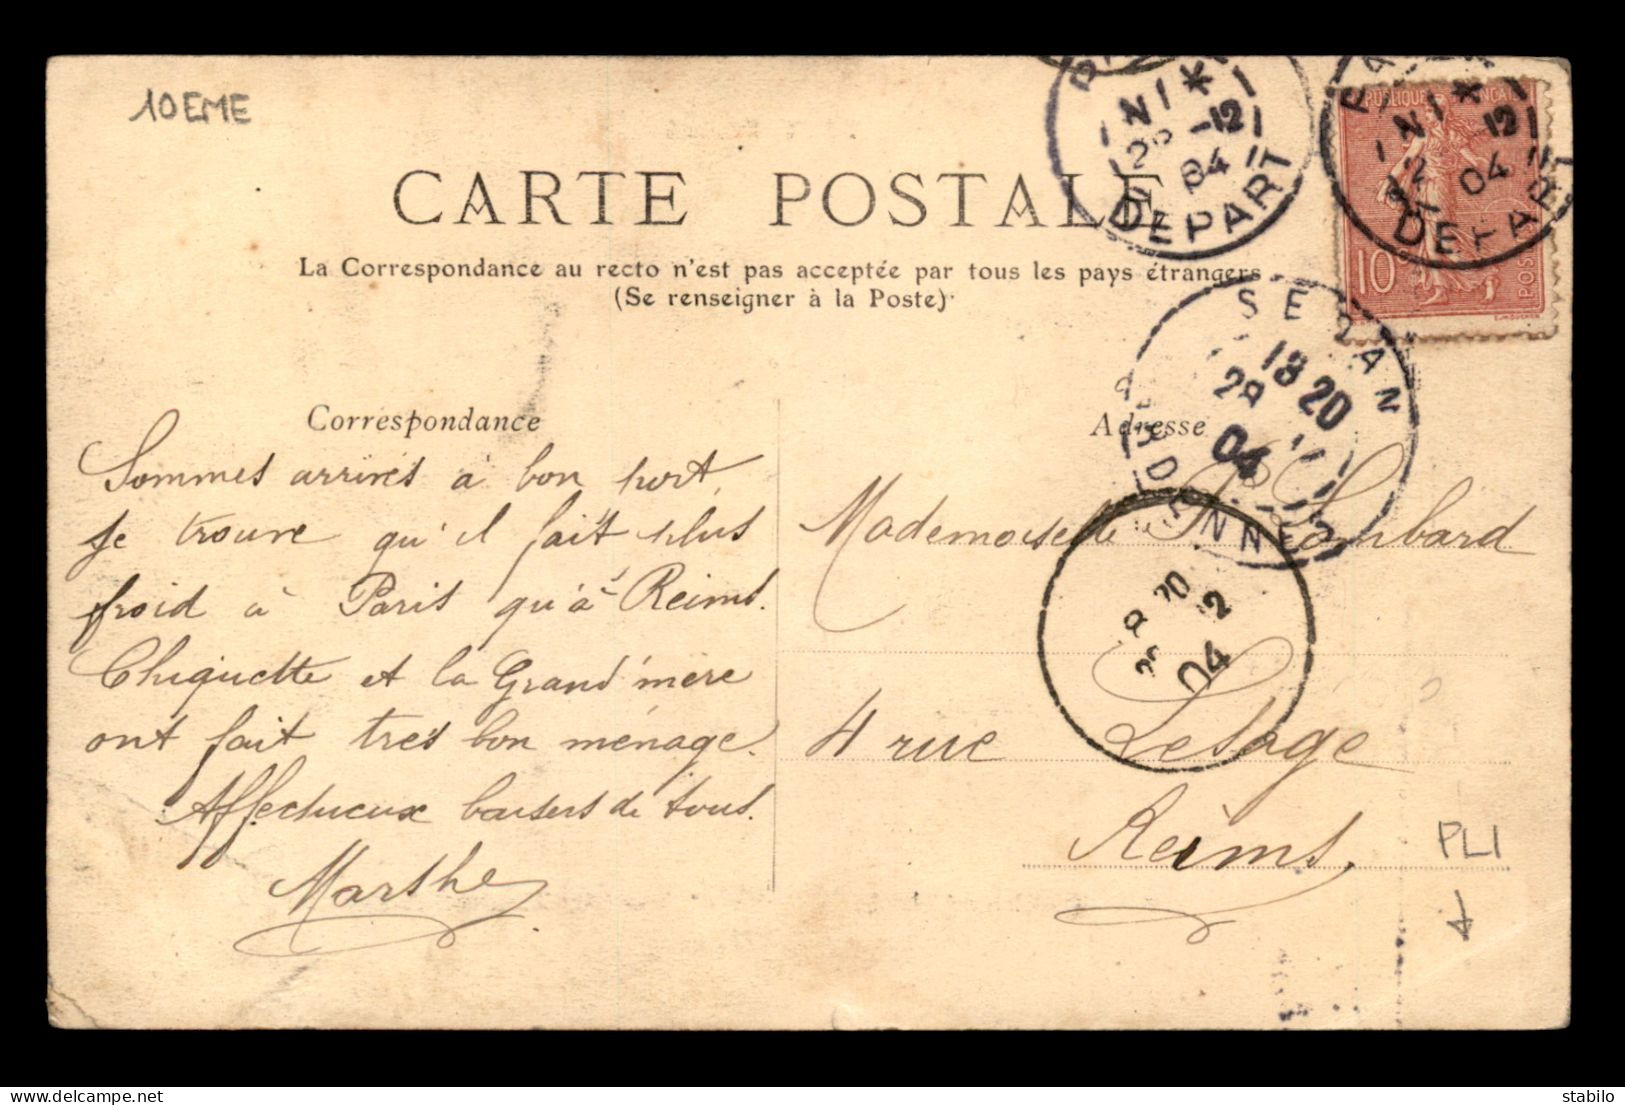 10EME
CARTE POSTALE
La Correspondance au recto n'est pas acceptée par tous les pays étrangers
(Se renseigner à la Poste)
NI *
-12
04
DEPART
NI *
12
04
DEPART
RÉPUBLIQUE FRANÇAISE
10
POSTES
SEDAN
18 20
28
04
ARDENNES
20
12
04
Correspondance
Sommes arrivés à bon port,
je trouve qu'il fait plus
froid à Paris qu'à Reims.
Chiquette et la Grand'mère
ont fait très bon ménage.
Affectueux baisers de tous.
Marthe
Adresse
Mademoiselle Lombard
4 rue Lesage
Reims
PLI
delcampe.net
ABOTSIBLO